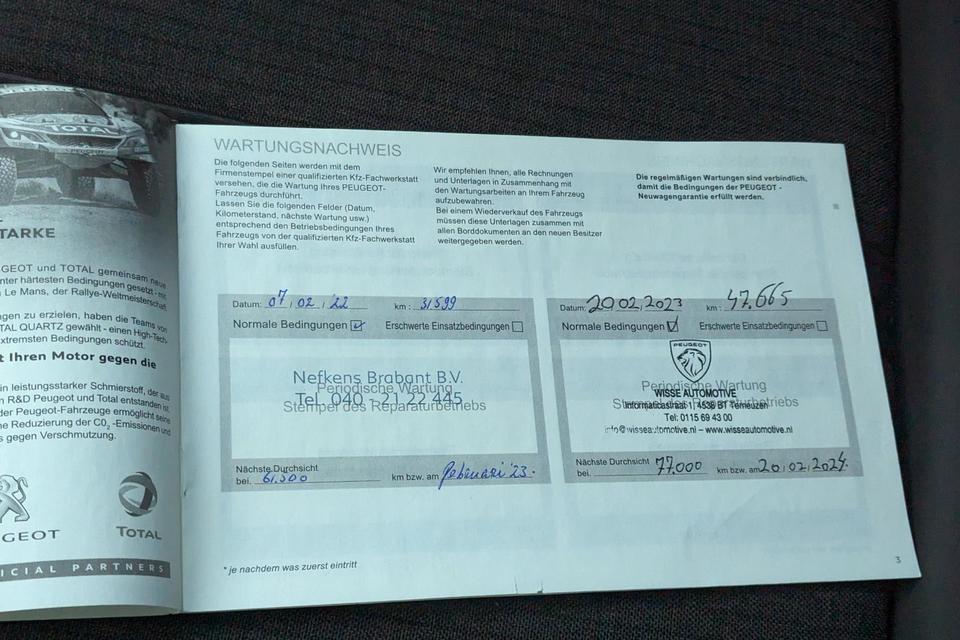 TOTAL
TARKE
GEOT und TOTAL gemeinsam neue
nter härtesten Bedingungen gesetzt - mit
Le Mans, der Rallye-Weltmeisterschaft
ngen zu erzielen, haben die Teams von
TAL QUARTZ gewählt - einen High-Tech-
xtremsten Bedingungen schützt.
t Ihren Motor gegen die
in leistungsstarker Schmierstoff, der aus
n R&D Peugeot und Total entstanden ist.
der Peugeot-Fahrzeuge ermöglicht seine
ne Reduzierung der CO2-Emissionen und
s gegen Verschmutzung.
GEOT
TOTAL
ICIAL PARTNERS
WARTUNGSNACHWEIS
Die folgenden Seiten werden mit dem
Firmenstempel einer qualifizierten Kfz-Fachwerkstatt
versehen, die die Wartung Ihres PEUGEOT-
Fahrzeugs durchführt.
Lassen Sie die folgenden Felder (Datum,
Kilometerstand, nächste Wartung usw.)
entsprechend den Betriebsbedingungen Ihres
Fahrzeugs von der qualifizierten Kfz-Fachwerkstatt
Ihrer Wahl ausfüllen.
Wir empfehlen Ihnen, alle Rechnungen
und Unterlagen in Zusammenhang mit
den Wartungsarbeiten an Ihrem Fahrzeug
aufzubewahren.
Bei einem Wiederverkauf des Fahrzeugs
müssen diese Unterlagen zusammen mit
allen Borddokumenten an den neuen Besitzer
weitergegeben werden.
Die regelmäßigen Wartungen sind verbindlich,
damit die Bedingungen der PEUGEOT -
Neuwagengarantie erfüllt werden.
Datum: 07/02/'22 km: 31599
Normale Bedingungen Erschwerte Einsatzbedingungen
Nefkens Brabant B.V.
Periodische Wartung
Tel. 040 - 21 22 445
Stempel des Reparaturbetriebs
Nächste Durchsicht
bei. 61.500 km bzw. am Februari '23.
Datum: 20/02/2023 km: 47.665
Normale Bedingungen Erschwerte Einsatzbedingungen
PEUGEOT
Periodische Wartung
WISSE AUTOMOTIVE
Stempel des Reparaturbetriebs
Informaticastraat 1, 4538 BT Terneuzen
Tel: 0115 69 43 00
info@wisseautomotive.nl – www.wisseautomotive.nl
Nächste Durchsicht
bei. 77.000 km bzw. am 20/02/2024.
* je nachdem was zuerst eintritt
3